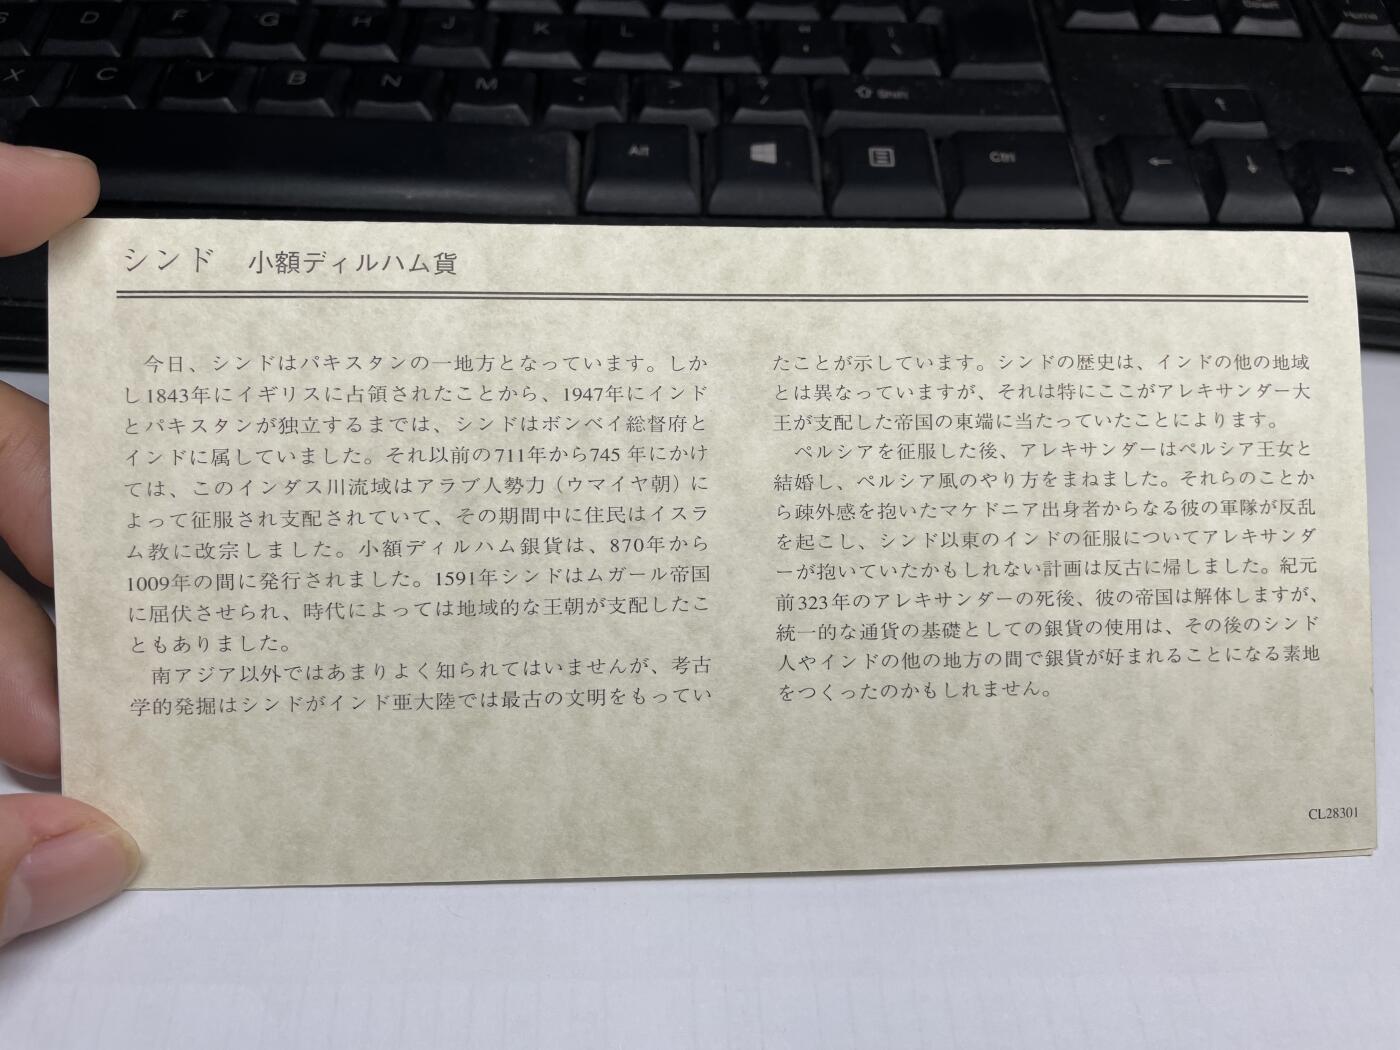 S
D
F
G
H
J
K
L
X
C
V
B
N
M
Shift
Alt
Ctrl
Home
シンド　小額ディルハム貨
今日、シンドはパキスタンの一地方となっています。しか
し1843年にイギリスに占領されたことから、1947年にインド
とパキスタンが独立するまでは、シンドはボンベイ総督府と
インドに属していました。それ以前の711年から745 年にかけ
ては、このインダス川流域はアラブ人勢力（ウマイヤ朝）に
よって征服され支配されていて、その期間中に住民はイスラ
ム教に改宗しました。小額ディルハム銀貨は、870年から
1009年の間に発行されました。1591年シンドはムガール帝国
に屈伏させられ、時代によっては地域的な王朝が支配したこ
ともありました。
南アジア以外ではあまりよく知られてはいませんが、考古
学的発掘はシンドがインド亜大陸では最古の文明をもってい
たことが示しています。シンドの歴史は、インドの他の地域
とは異なっていますが、それは特にここがアレキサンダー大
王が支配した帝国の東端に当たっていたことによります。
ペルシアを征服した後、アレキサンダーはペルシア王女と
結婚し、ペルシア風のやり方をまねました。それらのことか
ら疎外感を抱いたマケドニア出身者からなる彼の軍隊が反乱
を起こし、シンド以東のインドの征服についてアレキサンダ
ーが抱いていたかもしれない計画は反古に帰しました。紀元
前323年のアレキサンダーの死後、彼の帝国は解体しますが、
統一的な通貨の基礎としての銀貨の使用は、その後のシンド
人やインドの他の地方の間で銀貨が好まれることになる素地
をつくったのかもしれません。
CL28301